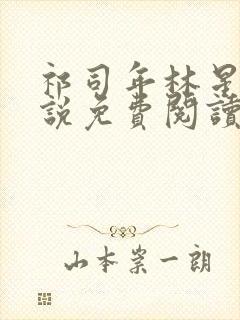 祁司年林星
說免費閱讀
山本崇一朗